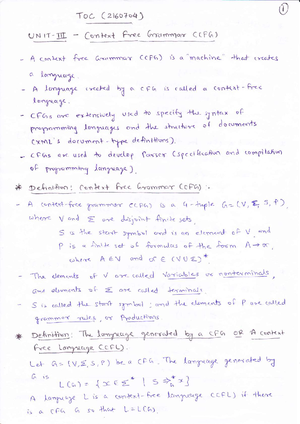 1
TOC (2160704)
UNIT-III - Context Free Grammar (CFG)
- A context free grammar (CFG) is a "machine" that creates
a language
- A language created by a CFG is called a context-free
language.
- CFGs are extensively used to specify the syntax of
programming languages and the structure of documents
(XML's document-type definitions).
- CFGs are used to develop Parser (specification and compilation
of programming language).
* Definition: Context Free Grammar (CFG).
- A context-free grammar (CFG) is a 4-tuple G=(V, Σ, S, P),
where V and Σ are disjoint finite sets,
S is the start symbol and is an element of V, and
P is a finite set of formulas of the form A→α,
where A∈V and α∈(V∪Σ)*
- The elements of V are called variables or nonterminals,
and elements of Σ are called terminals.
- S is called the start symbol; and the elements of P are called
grammar rules, or Productions
* Definition: The language generated by a CFG OR A context
free Language (CFL).
Let G=(V,Σ,S,P) be a CFG. The language generated by
G is
L(G) = { x∈Σ* | S ⇒*G x }
A language L is a context-free language (CFL) if there
is a CFG G so that L=L(G).